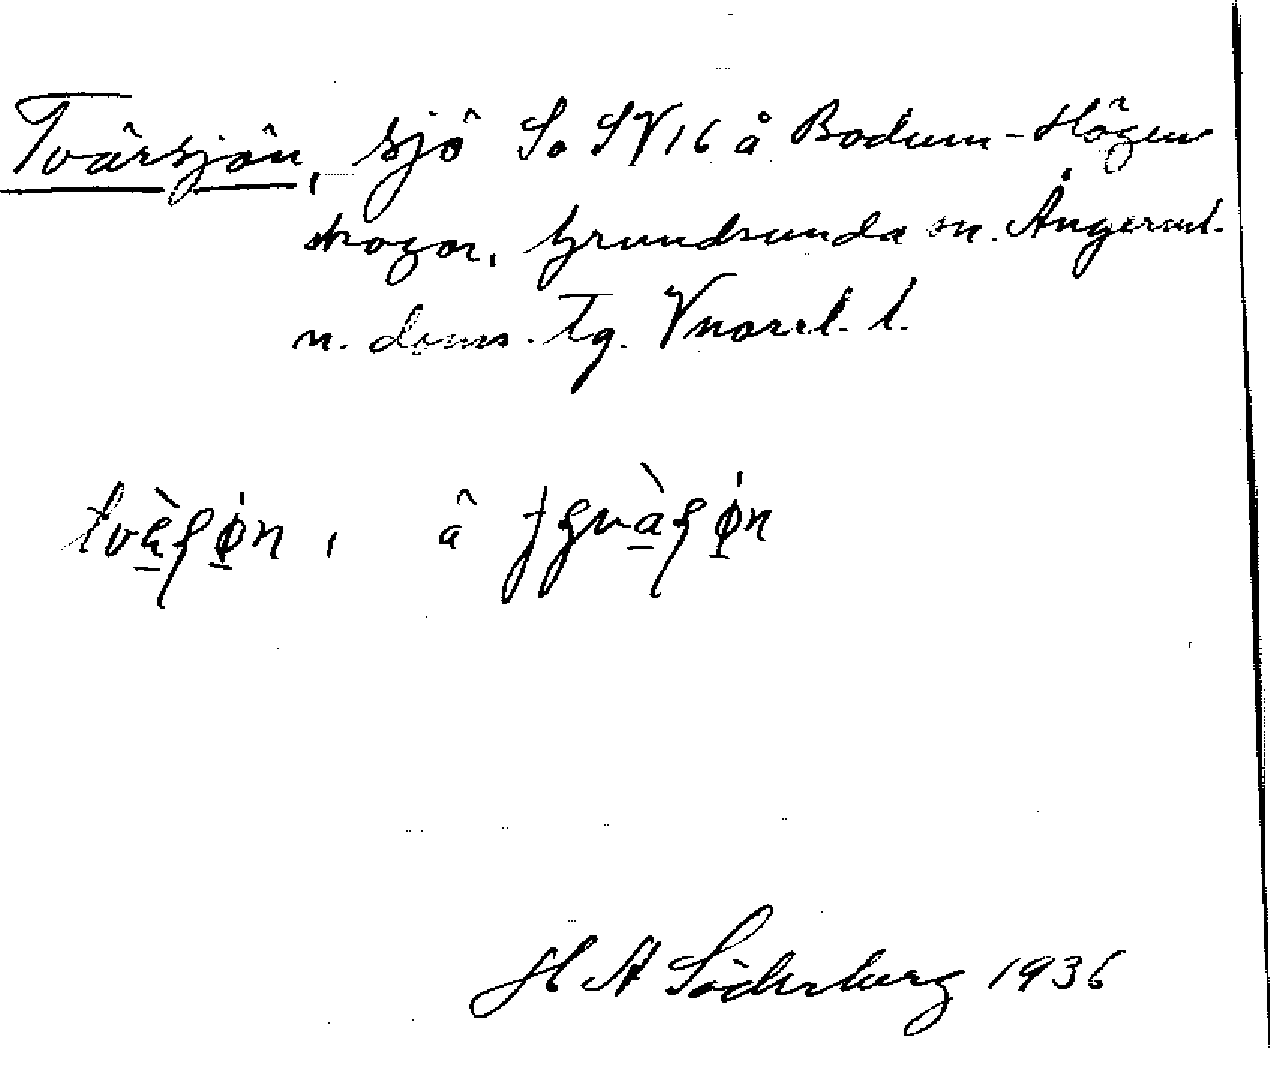 Tvärsjön, sjö So SV 16 å Bodum-Högen
skogar, Grundsunda sn. Ångerml.
n. doms. tg. Vnorrl. l.
tvàʂøn, å fʂvàʂøn
H A Söderberg 1936